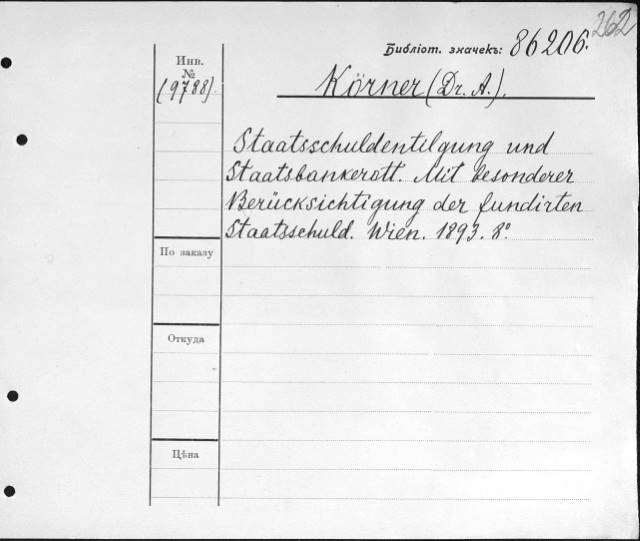 262
Библіот. значекъ: 86206.
Инв.
№
(9788).
Körner (Dr. A.).
Staatsschuldentilgung und
Staatsbankerott. Mit besonderer
Berücksichtigung der fundirten
Staatsschuld. Wien. 1893. 8º.
По заказу
Откуда
Цѣна